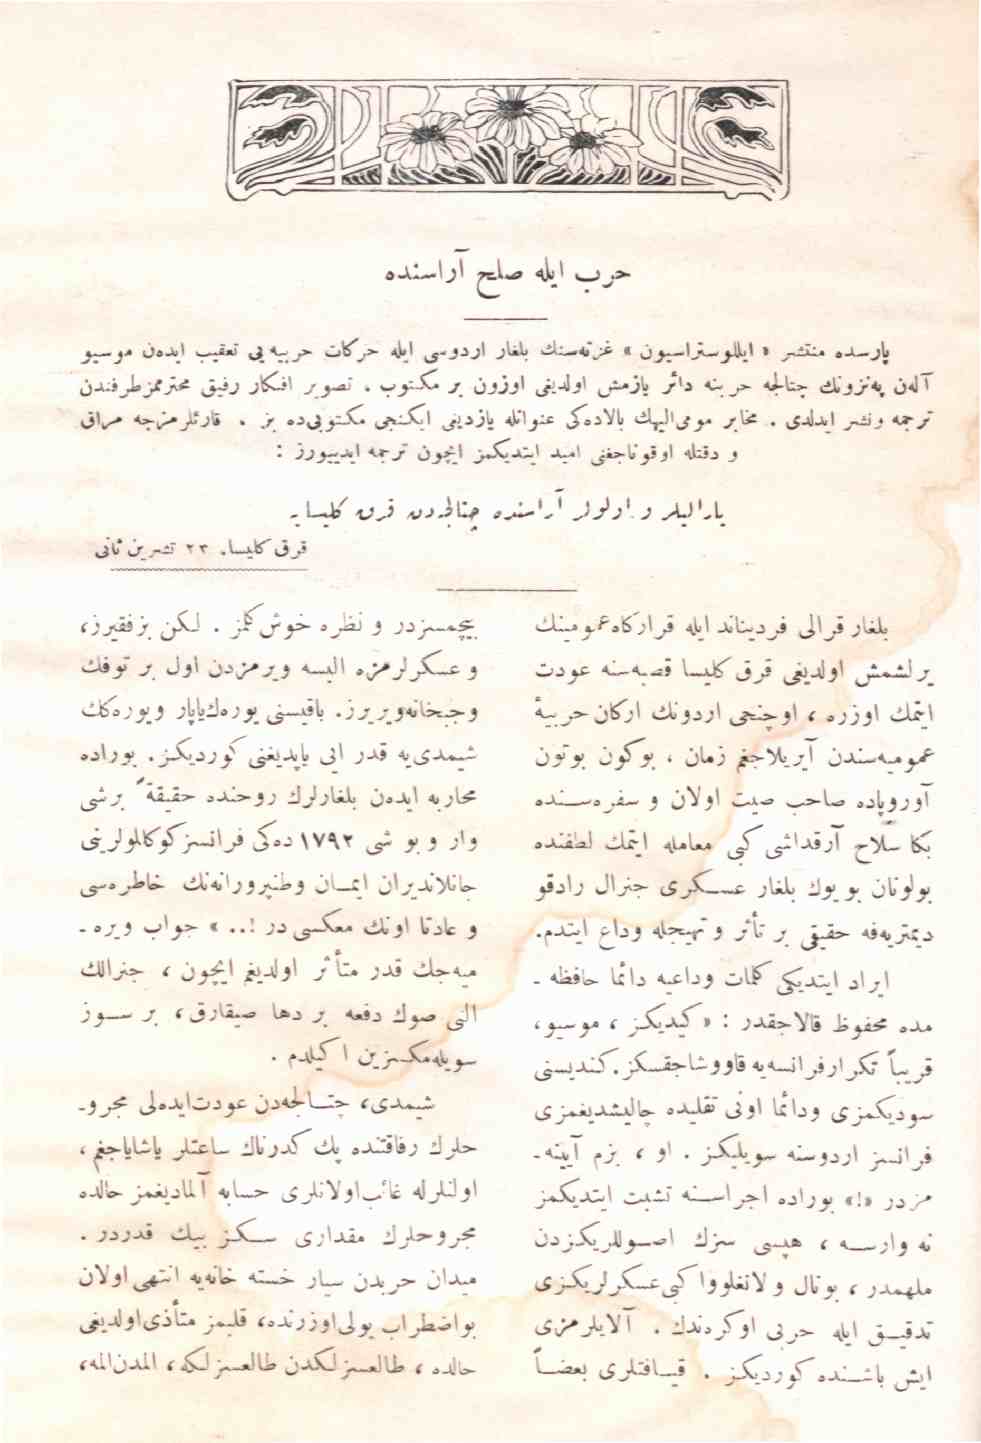 حرب ایله صلح آراسنده
پارسده منتشر « ایللوستراسیون » غزته‌سنك بلغار اردوسی ایله حركات حربیه‌یی تعقیب ایده‌ن موسیو
آله‌ن په‌نزونك چتالجه حربنه دائر یازمش اولدیغی اوزون بر مكتوب . تصویر افكار رفیق محترممز طرفندن
ترجمه ونشر ایدلدی . مخابر مومی الیهك بالاده‌كی عنوانله یازدیغی ایكنجی مكتوبی‌ده بز . قارئلرمزجه مراق
و دقتله اوقوناجغنی امید ایتدیكمز ایچون ترجمه ایدییورز :
یارالیلر و اولولر آراسنده چتالجه‌دن قرق كلیسایه
قرق كلیسا. ٢٣ تشرین ثانی
بلغار قرالی فردیناند ایله قرارگاه عمومینك
یرلشمش اولدیغی قرق كلیسا قصبه‌سنه عودت
ایتمك اوزره ، اوچنجی اردونك اركان حربیهٔ
عمومیه‌سندن آیریلاجغم زمان ، بوكون بوتون
آوروپاده صاحب صیت اولان و سفره‌سنده
بكا سلاح آرقداشی كبی معامله ایتمك لطفنده
بولونان بویوك بلغار عسكری جنرال رادقو
دیمتریه‌فه حقیقی بر تأثر و تهیجله وداع ایتدم.
ایراد ایتدیكی كلمات وداعیه دائما حافظه -
مده محفوظ قالاجقدر : « كیدیكز ، موسیو،
قریباً تكرار فرانسه‌یه قاووشاجقسكز. كندیسنی
سودیكمزی ودائما اونی تقلیده چالیشدیغمزی
فرانسز اردوسنه سویلیكز . او ، بزم آیینه-
مزدر «!» بوراده اجراسنه تشبث ایتدیكمز
نه وارسه ، هپسی سزك اصوللریكزدن
ملهمدر ، بونال و لانغلووا كبی عسكرلریكزی
تدقیق ایله حربی اوكرندك . آلایلرمزی
ایش باشنده كوردیكز . قیافتلری بعضاً
بیچمسزدر و نظره خوش كلمز . لكن بز فقیرز،
و عسكرلرمزه البسه ویرمزدن اول بر توفك
وجبخانه ویریرز. باقیسنی یوره‌ك یاپار ویوره‌كك
شیمدی‌یه قدر ایی یاپدیغنی كوردیكز. بوراده
محاربه ایده‌ن بلغارلرك روحنده حقیقةً برشی
وار و بو شی ١٧٩٢ ده‌كی فرانسز كوكللولرینی
جانلاندیران ایمان وطنپرورانه‌نك خاطره‌سی
و عادتا اونك معكسی در !.. » جواب ویره -
میه‌جك قدر متأثر اولدیغم ایچون ، جنرالك
النی صوك دفعه بر دها صیقارق، بر سوز
سویله‌مكسزین اكیلدم .
شیمدی، چتالجه‌دن عودت ایده‌لی مجرو-
حلرك رفاقتنده پك كدرناك ساعتلر یاشایاجغم ،
اولنلرله غائب اولانلری حسابه آلمادیغمز حالده
مجروحلرك مقداری سكز بیك قدردر .
میدان حربدن سیار خسته خانه‌یه انتهی اولان
بواضطراب یولی اوزرنده، قلبمز متأذی اولدیغی
حالده ، طالعسزلكدن طالعسزلكه، المدن المه،